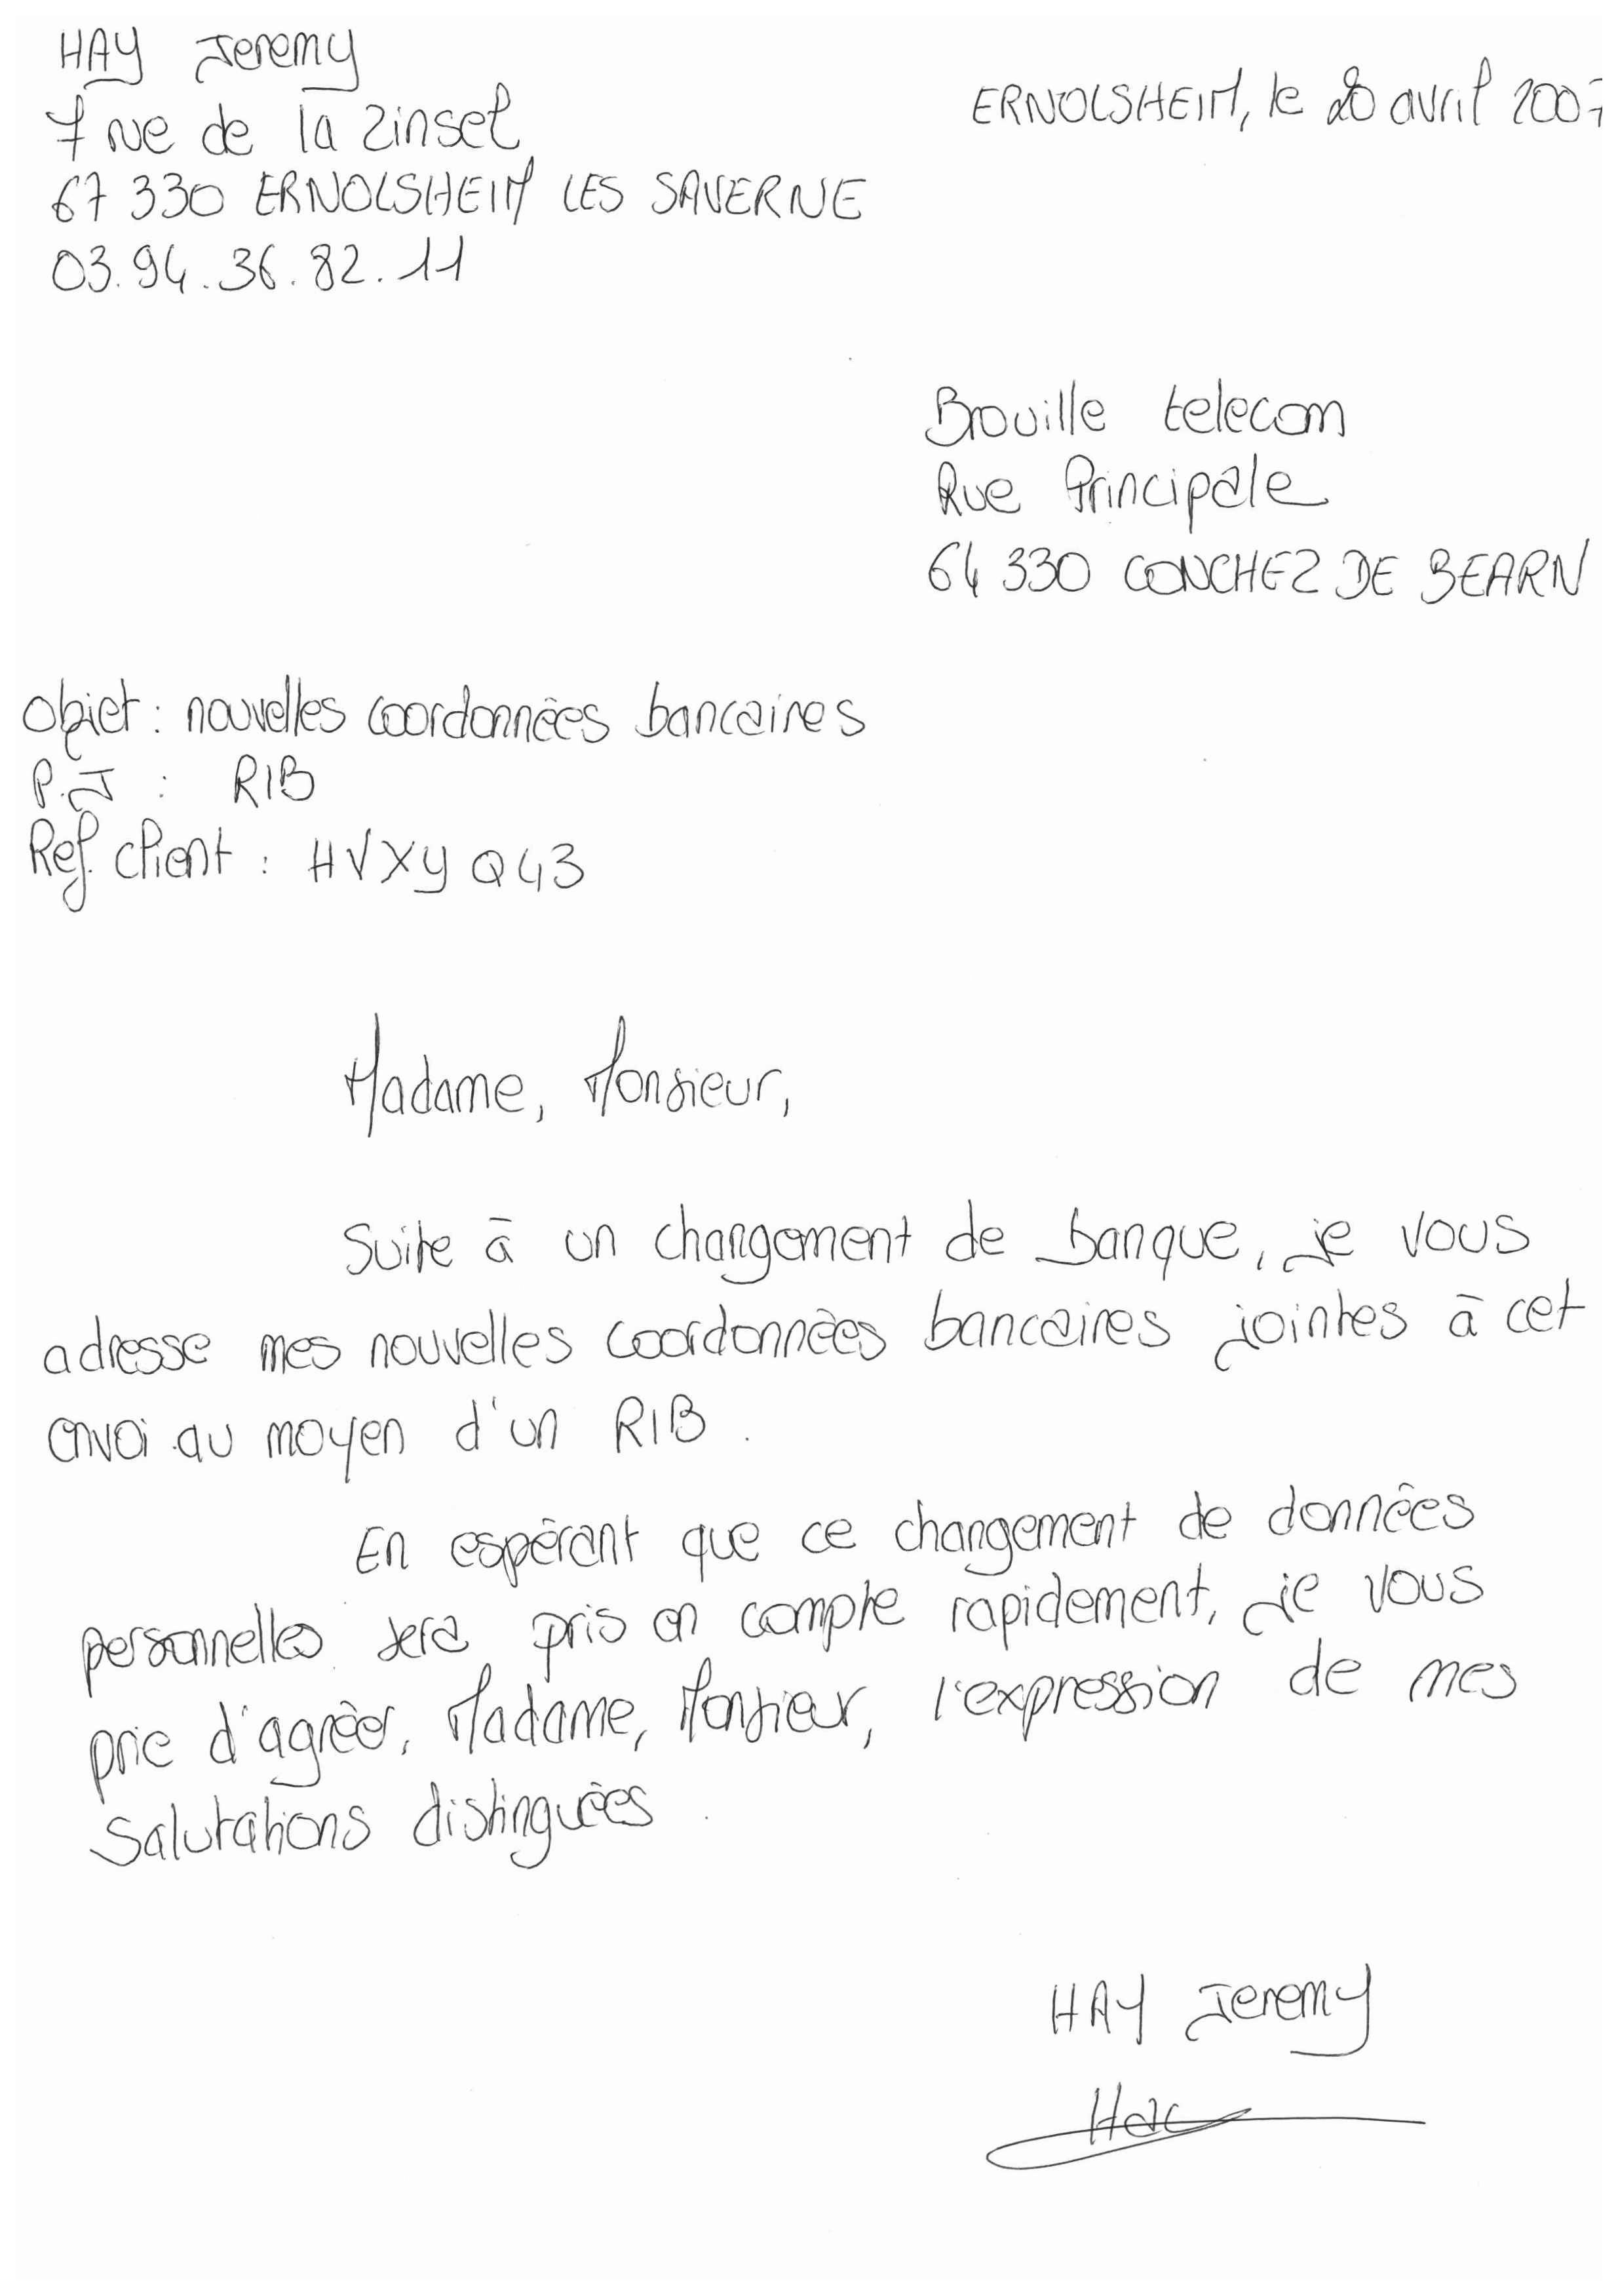 HAY Jeremy
7 rue de la Zinsel
67 330 ERNOLSHEIM LES SAVERNE
03.94.36.82.11
ERNOLSHEIM, le 20 avril 2007
Brouille telecom
Rue Principale
64 330 CONCHEZ DE BEARN
Objet : nouvelles coordonnées bancaires
P.J : RIB
Ref. client : HVXYQ43
Madame, Monsieur,
Suite à un changement de banque, je vous
adresse mes nouvelles coordonnées bancaires jointes à cet
envoi au moyen d'un RIB.
En espérant que ce changement de données
personnelles sera pris en compte rapidement, je vous
prie d'agréer, Madame, Monsieur, l'expression de mes
salutations distinguées.
HAY Jeremy